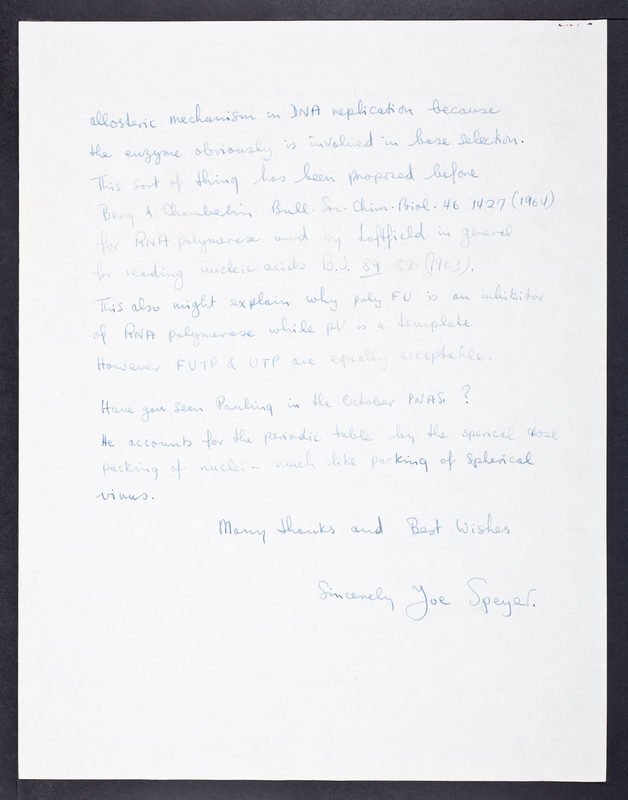 allosteric mechanism in DNA replication because
the enzyme obviously is involved in base selection.
This sort of thing has been proposed before
Berg & Chamberlin Bull. Soc. Chim. Biol. 46 1427 (1964)
for RNA polymerase and by Loftfield in general
for reading nucleic acids B.J. 89 82. (1963).
This also might explain why poly FU is an inhibitor
of RNA polymerase while pU is a template
However FUTP & UTP are equally acceptable.
Have you seen Pauling in the October PNAS ?
He accounts for the periodic table by the sperical close
packing of nuclei - much like parking of spherical
virus.
Many thanks and Best Wishes
Sincerely Joe Speyer.